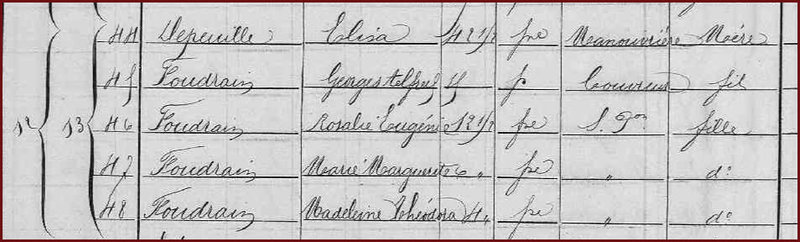 44 Depeuille Elisa 42 1/2 fse Manouvrière Mère
45 Foudrain Georges Alfred f Couvreur fil
12 13 46 Foudrain Rosalie Eugénie 12 1/2 fse S. Pon fille
47 Foudrain Marie Marguerite 6 " fse " do
48 Foudrain Madeleine Théodora 4 " fse " do